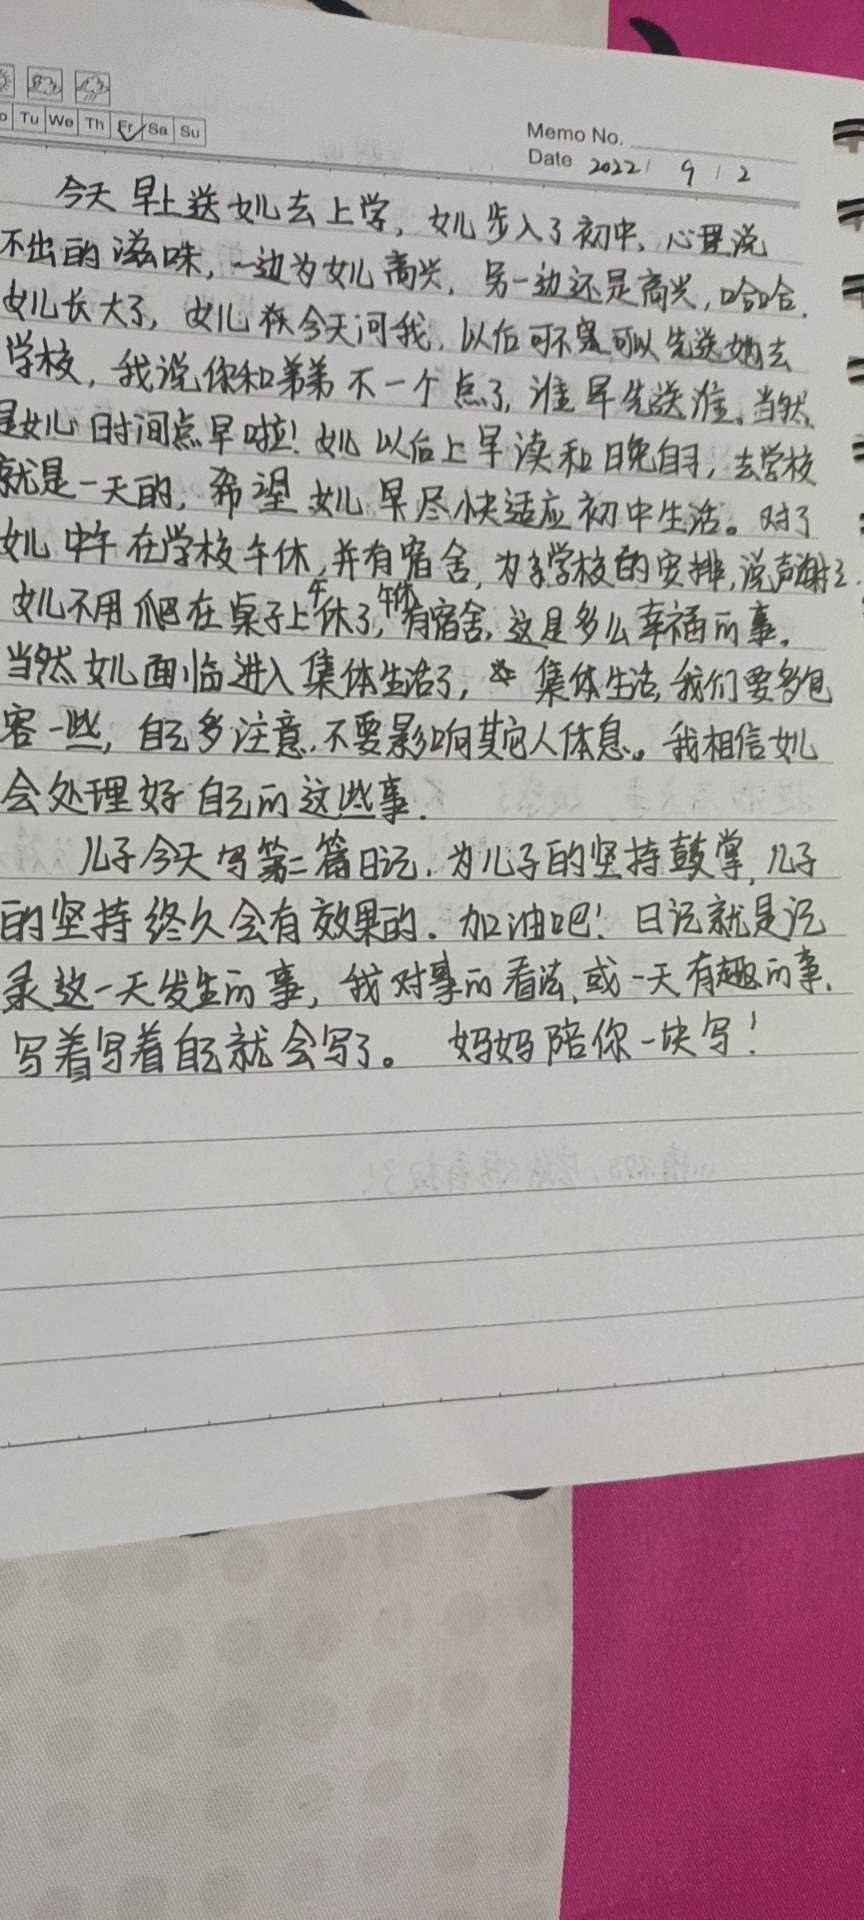 Tu We Th Fr Sa Su
Memo No.
Date 2022/ 9 / 2
今天早上送女儿去上学,女儿步入了初中,心里说
不出的滋味,一边为女儿高兴,另一边还是高兴,哈哈.
女儿长大了,女儿在今天问我,以后可不可以先送她去
学校,我说你和弟弟不一个点了,谁早先送谁。当然
是女儿时间点早啦!女儿以后上早读和晚自习,去学校
就是一天的,希望女儿早尽快适应初中生活。对了
女儿中午在学校午休,并有宿舍,为学校的安排,说声谢谢.
女儿不用爬在桌子上午休了,午休有宿舍,这是多么幸福的事。
当然女儿面临进入集体生活了,集体生活,我们要多包
容一些,自己多注意,不要影响其它人休息。我相信女儿
会处理好自己的这些事.
儿子今天写第二篇日记,为儿子的坚持鼓掌,儿子
的坚持终久会有效果的.加油吧!日记就是记
录这一天发生的事,我对事的看法,或一天有趣的事.
写着写着自己就会写了。妈妈陪你一块写!